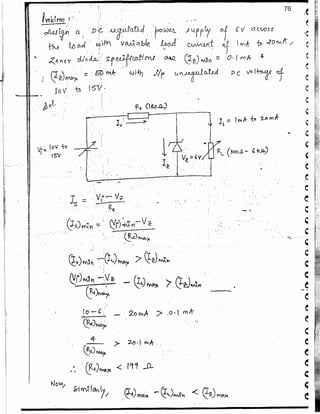 76
Problem :
design a DC regulated power supply of 6V across
the load with variable load current of 1mA to 20mA,
Zener diode specifications are (Iz)min = 0.1mA &
(Iz)max = mA with i/p unregulated DC voltage of
10V to 15V.
Sol.
Rs (180Ω)
Is
IL = 1mA to 20mA
Vi = 10V to 15V
Vz = 6V
RL (300Ω - 6KΩ)
Iz
Is = Vi - Vz
Rs
(Is)min = (Vi)min - Vz
(Rs)max
(Is)min - (IL)max > (Iz)min
(Vi)min - Vz - (IL)max > (Iz)min
(Rs)max
10 - 6 - 20mA > 0.1 mA
(Rs)max
4 > 20.1 mA
(Rs)max
∴ (Rs)max < 199 Ω
Now, similarly, (Is)max - (IL)min < (Iz)max